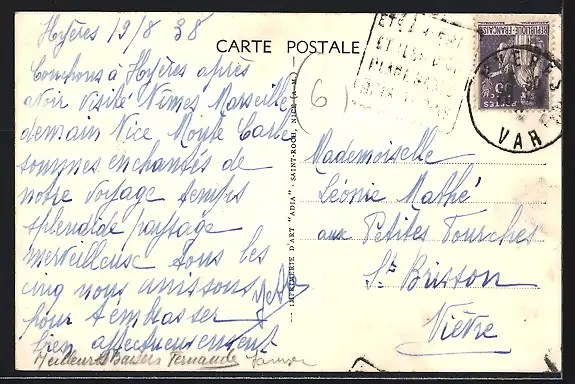 Hyères 19/8 38
Couchons à Hyères après
avoir visité Nimes Marseille
demain Nice Monte Carle
sommes enchantés de
notre voyage temps
splendide paysage
merveilleuse tous les
cinq nous unissons
pour t'embrasser
bien affectueusement
Meilleurs Baisers Fernande
CARTE POSTALE
6
IMPRIMERIE D'ART "ADIA" - SAINT-ROCH, NICE (A.-M.)
ÉTÉ
RÉPUBLIQUE FRANÇAISE
POSTES
HYERES
VAR
Mademoiselle
Léonie Mathé
aux Petites Fourches
St Brisson
Nièvre